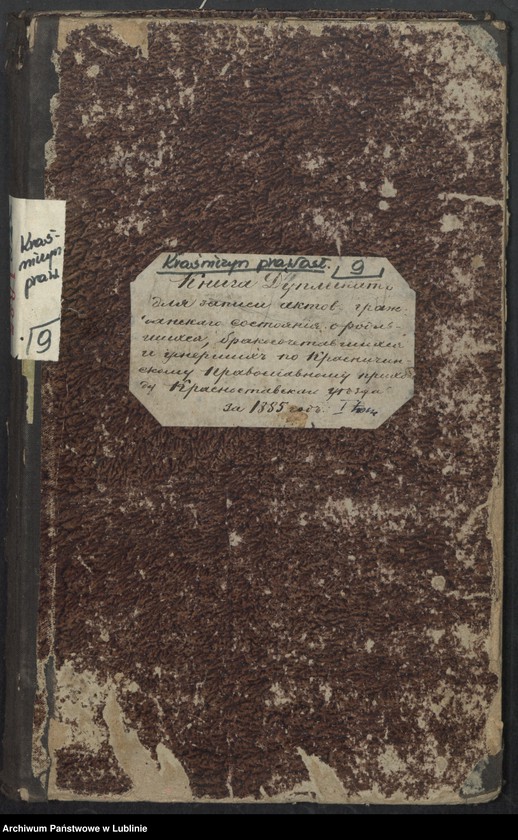 Kraś-
niczyn
praw.
9
Kraśniczyn prawosł. 9
Книга Дупликатъ
для записи актов граж-
данскаго состоянія о родив-
шихся, бракосочетавшихся
и умершихъ по Красничин-
скому Православному прихо-
ду Красноставскаго уѣзда
за 1885 годъ. I
Archiwum Państwowe w Lublinie